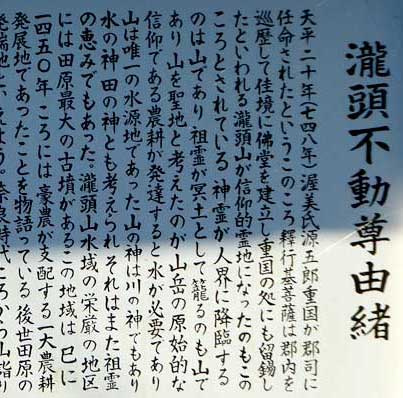 瀧頭不動尊由緒
天平二十年(七四八年)渥美氏源五郎重国が郡司に
任命されたというこのころ釋行基菩薩は郡内を
巡歴して佳境に佛堂を建立し重国の処にも留錫し
たといわれる瀧頭山が信仰的霊地になったのもこの
ころとされている神霊が人界に降臨する
のは山であり祖霊が冥土として籠るのも山で
あり山を聖地と考えたのが山岳の原始的な
信仰である農耕が発達すると水が必要であり
山は唯一の水源地であった山の神は川の神でもあり
水の神田の神とも考えられそれはまた祖霊
の恵みでもあった。瀧頭山水域の栄厳の地区
には田原最大の古墳があるこの地域は已に
一四五〇年ころには豪農が支配する一大農耕
発展地であったことを物語っている後世田原の
発端地と いえよう。奈良時代ころから山詣り